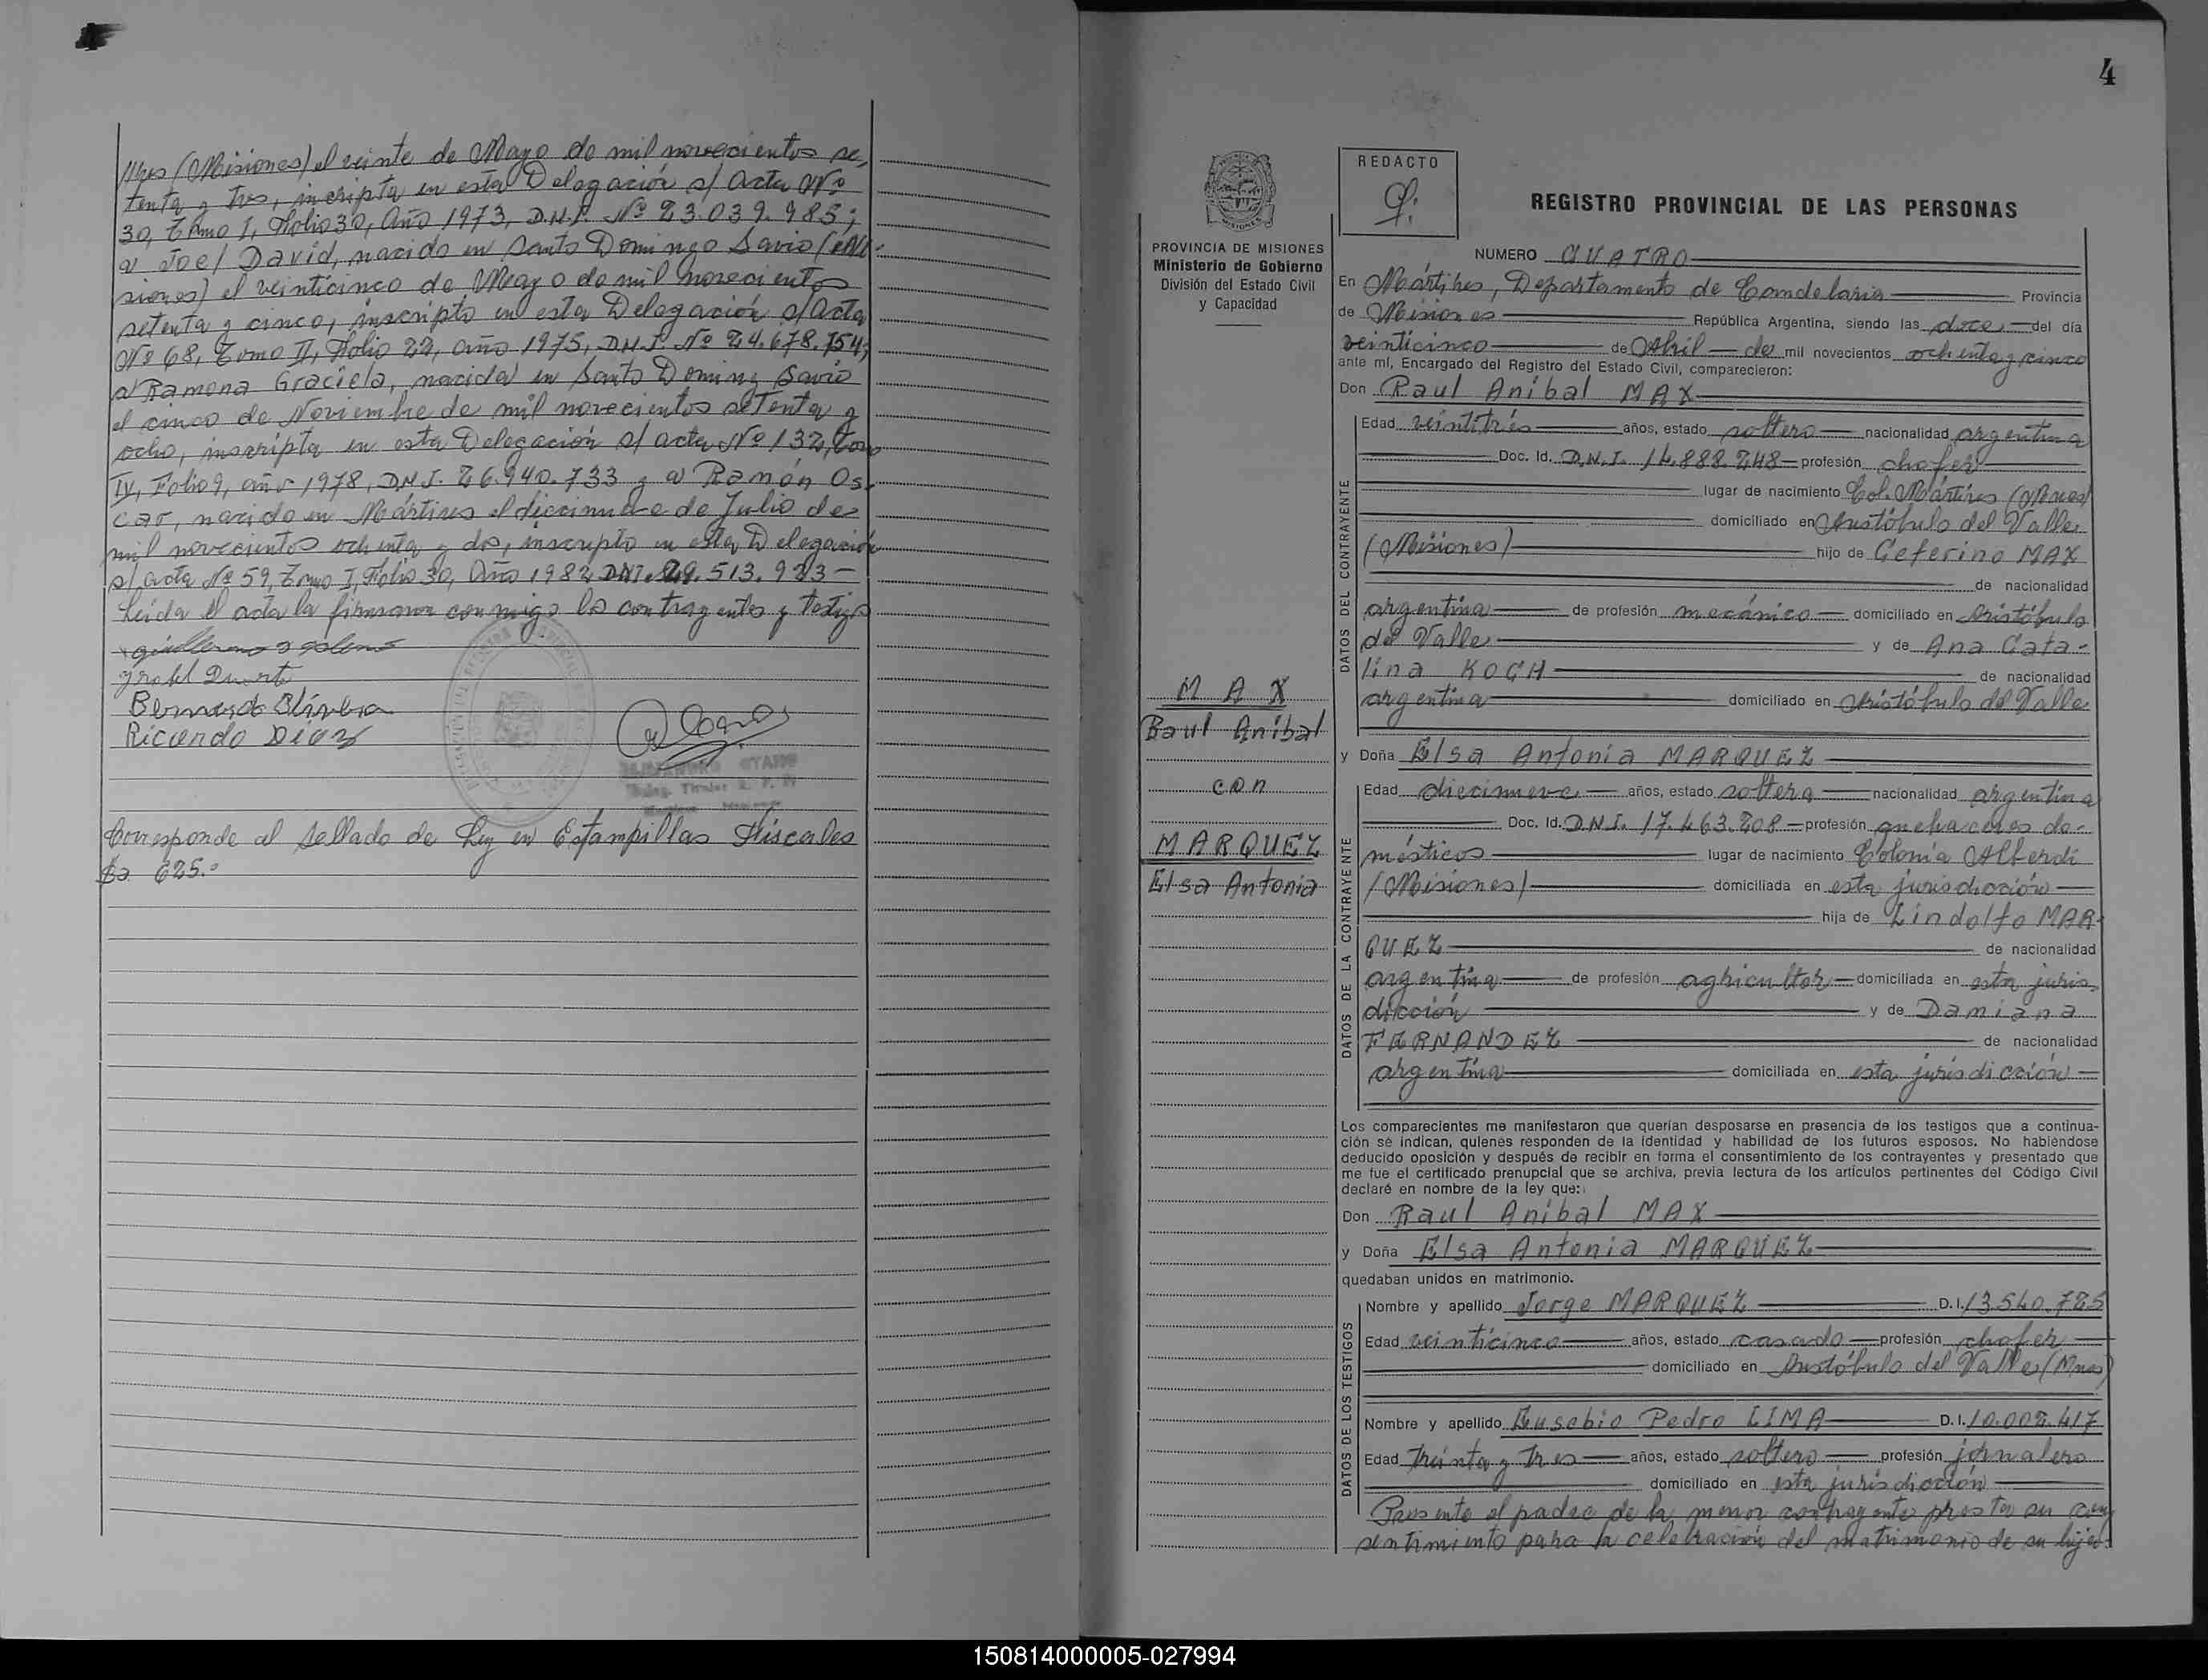 tires (Misiones) el veinte de Mayo de mil novecientos se,
tenta y tres, inscripta en esta Delegación s/ Acta Nº
30, Tomo I, Folio 30, Año 1973, D.N.I. Nº 23.039.985;
a Joel David, nacido en Santo Domingo Savio (Mi-
siones) el veinticinco de Mayo de mil novecientos
setenta y cinco, inscripto en esta Delegación s/Acta
Nº 68, Tomo II, Folio 22, año 1975, D.N.I. Nº 24.678.754;
a Ramona Graciela, nacida en Santo Domingo Savio
el cinco de Noviembre de mil novecientos setenta y
ocho, inscripta en esta Delegación s/ acta Nº 132, Tomo
IV, Folio 9, año 1978, D.N.I. 26.940.733 y a Ramón Os-
car, nacido en Mártires el diecinueve de Julio de
mil novecientos ochenta y dos, inscripto en esta Delegación
s/ acta Nº 59, Tomo I, Folio 30, Año 1982 DNI. 29.513.923—
Leída el acta la firmaron conmigo los contrayentes y testigos
Bernardo Olivera
Ricardo Diaz
Corresponde al sellado de Ley en Estampillas Fiscales
$a 625.=
4
PROVINCIA DE MISIONES
Ministerio de Gobierno
División del Estado Civil
y Capacidad
MAX
Raul Anibal
con
MARQUEZ
Elsa Antonia
REDACTO
REGISTRO PROVINCIAL DE LAS PERSONAS
NUMERO CUATRO
En Mártires, Departamento de Candelaria Provincia
de Misiones República Argentina, siendo las doce del día
veinticinco de Abril de mil novecientos ochenta y cinco
ante mí, Encargado del Registro del Estado Civil, comparecieron:
Don Raul Anibal MAX
DATOS DEL CONTRAYENTE
Edad veintitrés años, estado soltero nacionalidad argentina
Doc. Id. D.N.I. 14.888.248 profesión chofer
lugar de nacimiento Col. Mártires (Mnes)
domiciliado en Aristóbulo del Valle
(Misiones) hijo de Ceferino MAX
de nacionalidad
argentina de profesión mecánico domiciliado en Aristóbulo
del Valle y de Ana Cata-
lina KOCH de nacionalidad
argentina domiciliado en Aristóbulo del Valle
y Doña Elsa Antonia MARQUEZ
DATOS DE LA CONTRAYENTE
Edad diecinueve años, estado soltera nacionalidad argentina
Doc. Id. D.N.I. 17.463.208 profesión quehaceres do-
mésticos lugar de nacimiento Colonia Alberdi
(Misiones) domiciliada en esta jurisdicción
hija de Lindolfo MAR-
QUEZ de nacionalidad
argentina de profesión agricultor domiciliada en esta juris-
dicción y de Damiana
FERNANDEZ de nacionalidad
argentina domiciliada en esta jurisdicción
Los comparecientes me manifestaron que querían desposarse en presencia de los testigos que a continua-
ción se indican, quienes responden de la identidad y habilidad de los futuros esposos. No habiéndose
deducido oposición y después de recibir en forma el consentimiento de los contrayentes y presentado que
me fue el certificado prenupcial que se archiva, previa lectura de los artículos pertinentes del Código Civil
declaré en nombre de la ley que:
Don Raul Anibal MAX
y Doña Elsa Antonia MARQUEZ
quedaban unidos en matrimonio.
DATOS DE LOS TESTIGOS
Nombre y apellido Jorge MARQUEZ D. I. 13.540.725
Edad veinticinco años, estado casado profesión chofer
domiciliado en Aristóbulo del Valle (Mnes)
Nombre y apellido Eusebio Pedro LIMA D. I. 10.002.417
Edad treinta y tres años, estado soltero profesión jornalero
domiciliado en esta jurisdicción
Presente el padre de la menor contrayente presta su con,
sentimiento para la celebración del matrimonio de su hija.
150814000005-027994